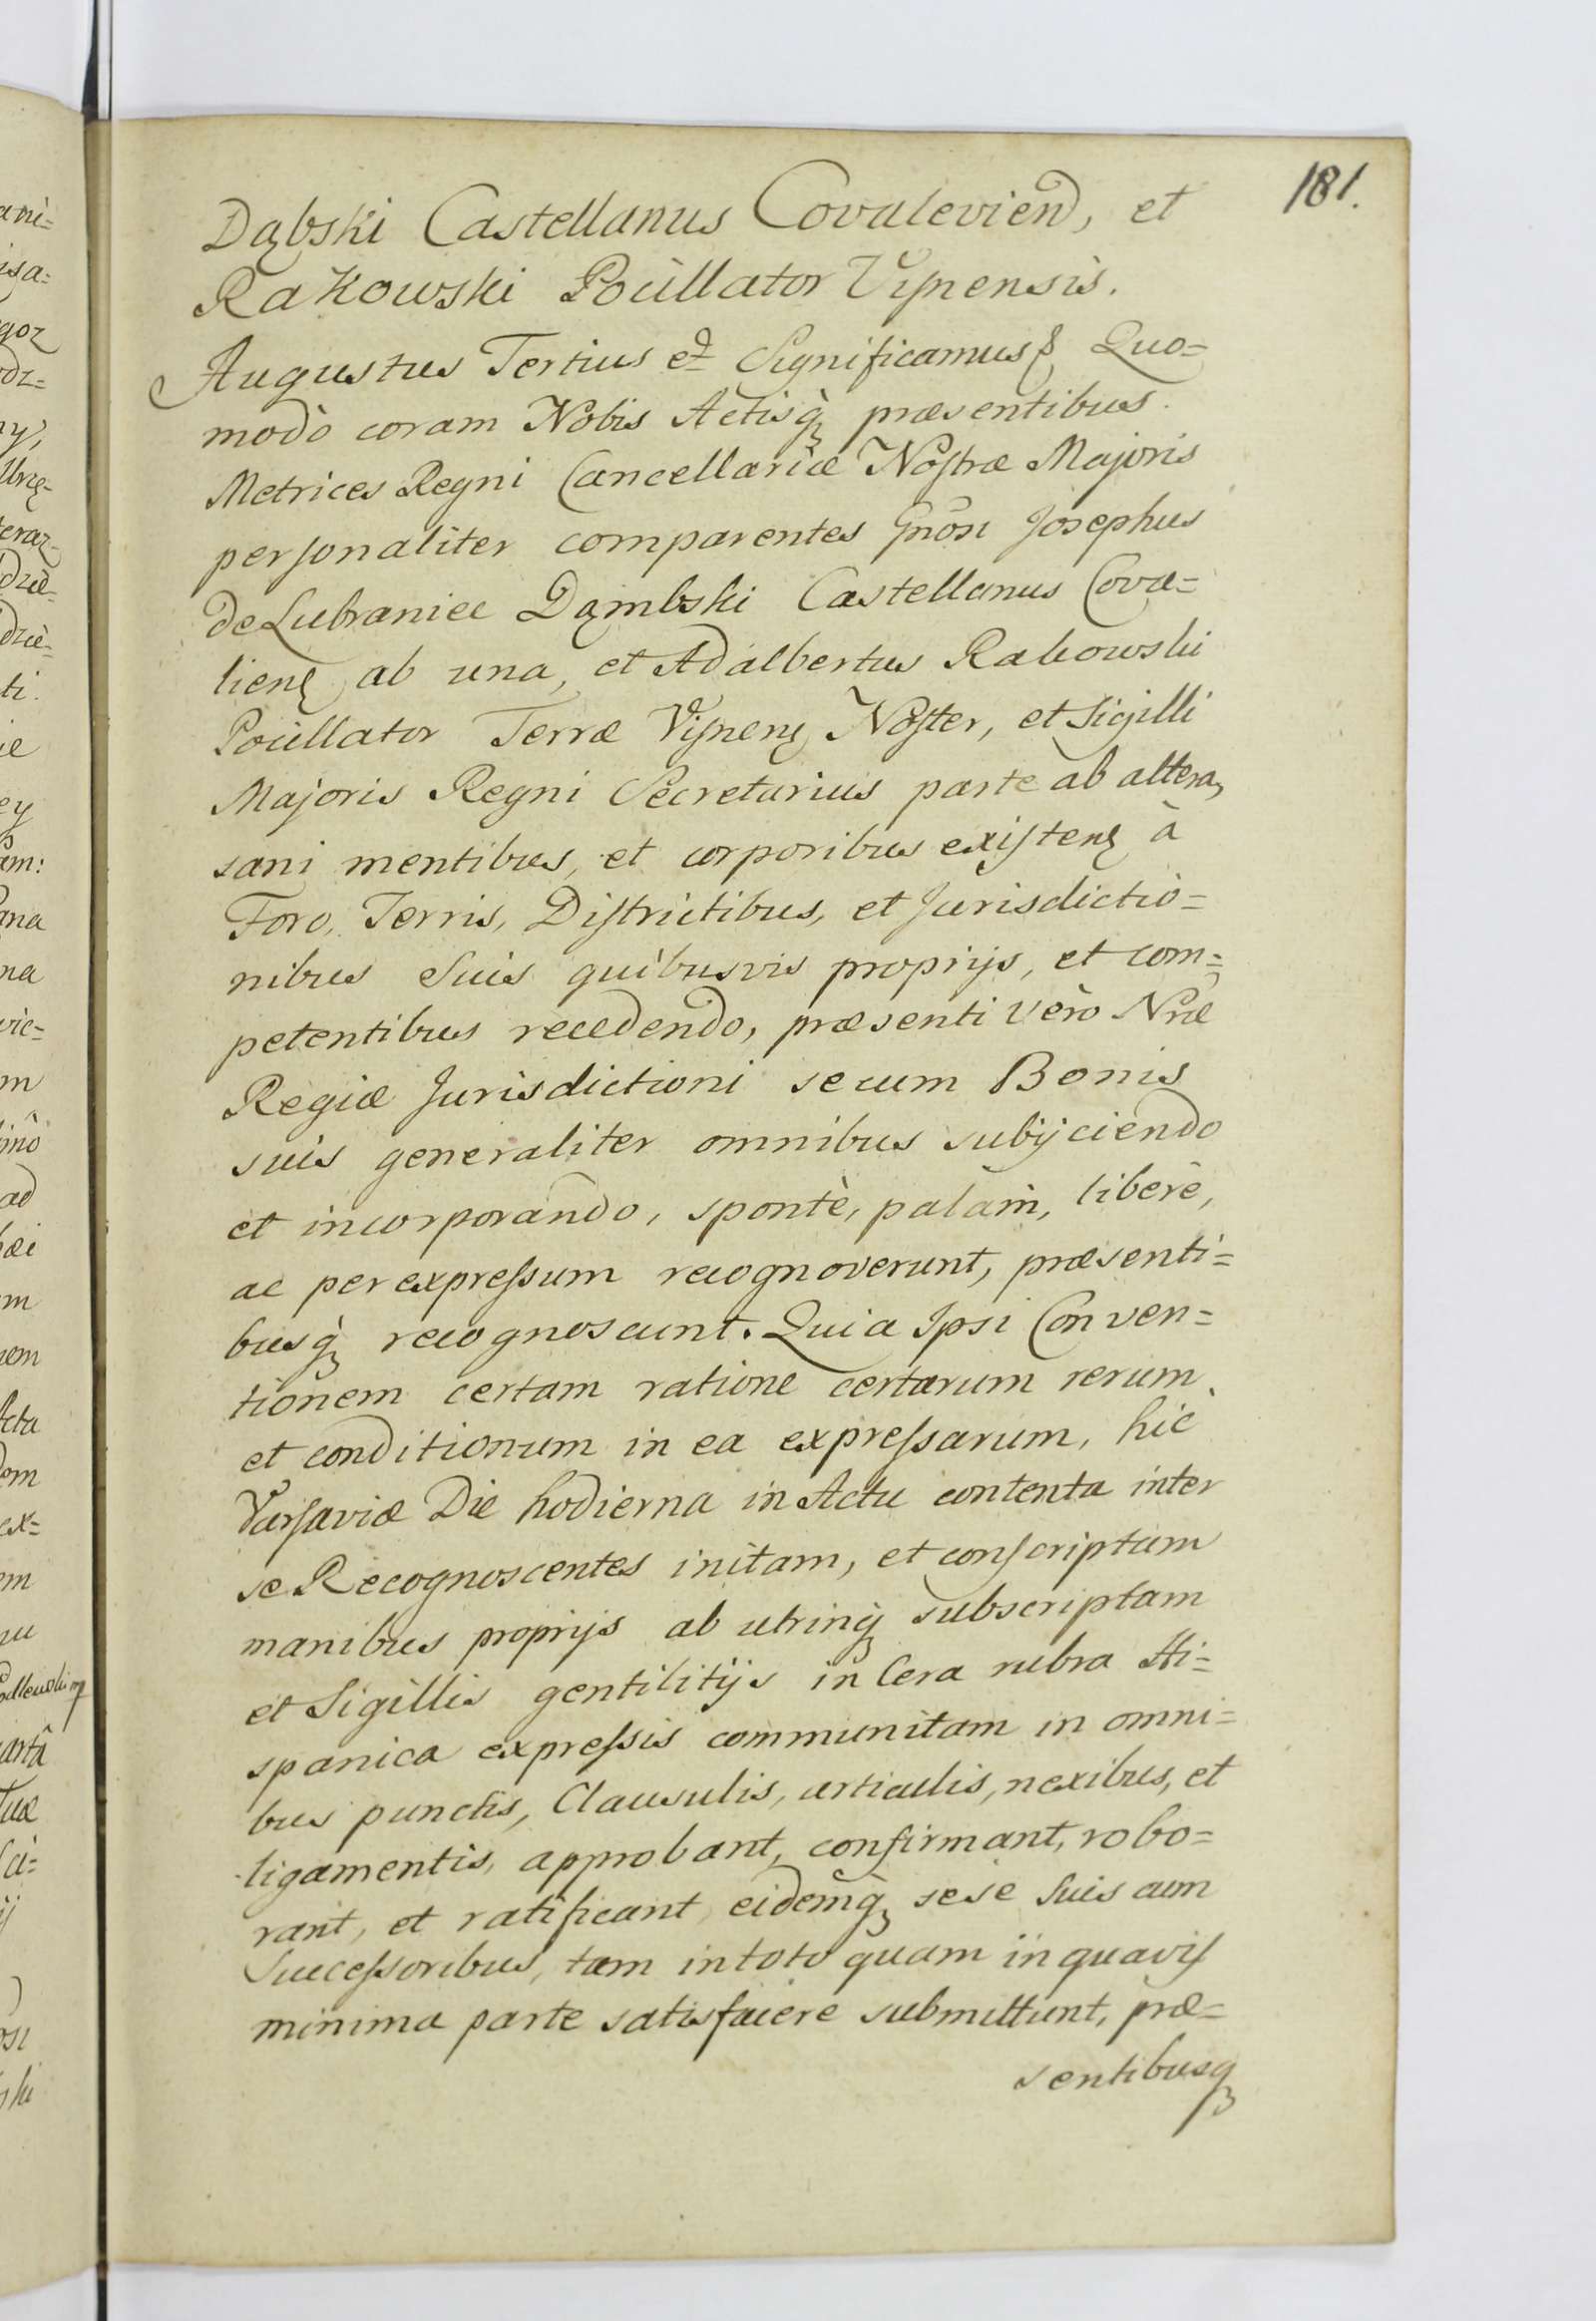 181.
Dąbski Castellanus Covalevien, et
Rakowski Pocillator Visnensis.
Augustus Tertius et Significamus Quo=
modò coram Nobis Actisq̀ præsentibus
Metrices Regni Cancellariæ Nostræ Majoris
personaliter comparentes Gnosi Josephus
de Lubraniec Dąmbski Castellanus Cova=
liens ab una, et Adalbertus Rakowski
Pocillator Terræ Visnens Noster, et Sigilli
Majoris Regni Secretarius parte ab altera,
sani mentibus, et corporibus existens à
Foro, Terris, Districtibus, et Jurisdictio=
nibus Suis quibusvis proprijs, et com=
petentibus recedendo, præsenti verò Nræ
Regiæ Jurisdictioni secum Bonis
suis generaliter omnibus subijciendo
et incorporando, spontè, palàm, liberè,
ac per expressum recognoverunt, præsenti=
busq̀ recognoscunt. Quia Ipsi Conven=
tionem certam ratione certarum rerum
et conditionum in ea expressarum, hic
Varsaviæ Die hodierna in Actu contenta inter
se Recognoscentes initam, et conscriptam
manibus proprijs ab utrinq̀ subscriptam
et Sigillis gentilitijs in Cera rubra Hi=
spanica expressis communitam in omni=
bus punctis, Clausulis, articulis, nexibus, et
ligamentis, approbant, confirmant, robo=
rant, et ratificant, eidemq̀ sese suis cum
Successoribus, tam in toto quam in quavis
minima parte satisfacere submittunt, præ=
sentibusq